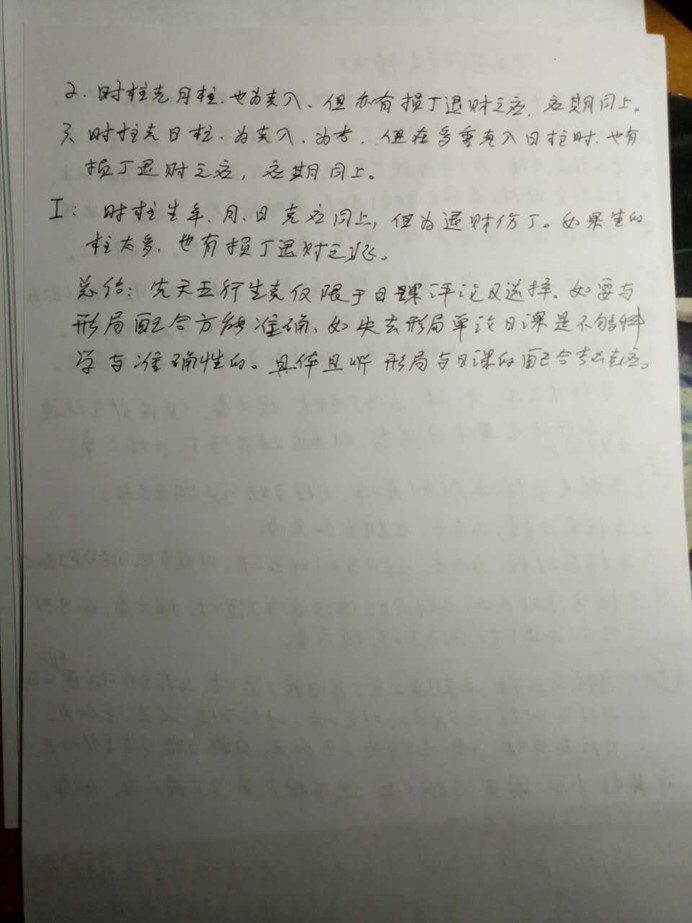 2. 时柱克月柱.也为克入.但亦有损丁退财之应.应期同上。
3. 时柱克日柱.为克入.为吉.但在多重克入日柱时.也有
损丁退财之应,应期同上。
I: 时柱生年.月.日克应同上,但为退财伤丁。如果生的
柱太多.也有损丁退财之兆。
总结:先天五行生克仅限于日课评论及选择.如要与
形局配合方能准确.如失去形局单论日课是不够科
学与准确性的。具体且听形局与日课的配合